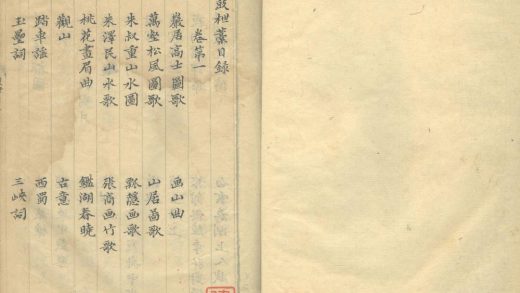 鼓枻藁目錄
卷第一
巖居高士圖歌 画山曲
萬壑松風圖歌 山居圖歌
朱叔重山水圖 瓢隱画歌
朱澤民山水歌 張商画竹歌
桃花畫眉曲 鑑湖春曉
觀山 古意
踏車謠 西蜀
玉壘詞 三峽詞